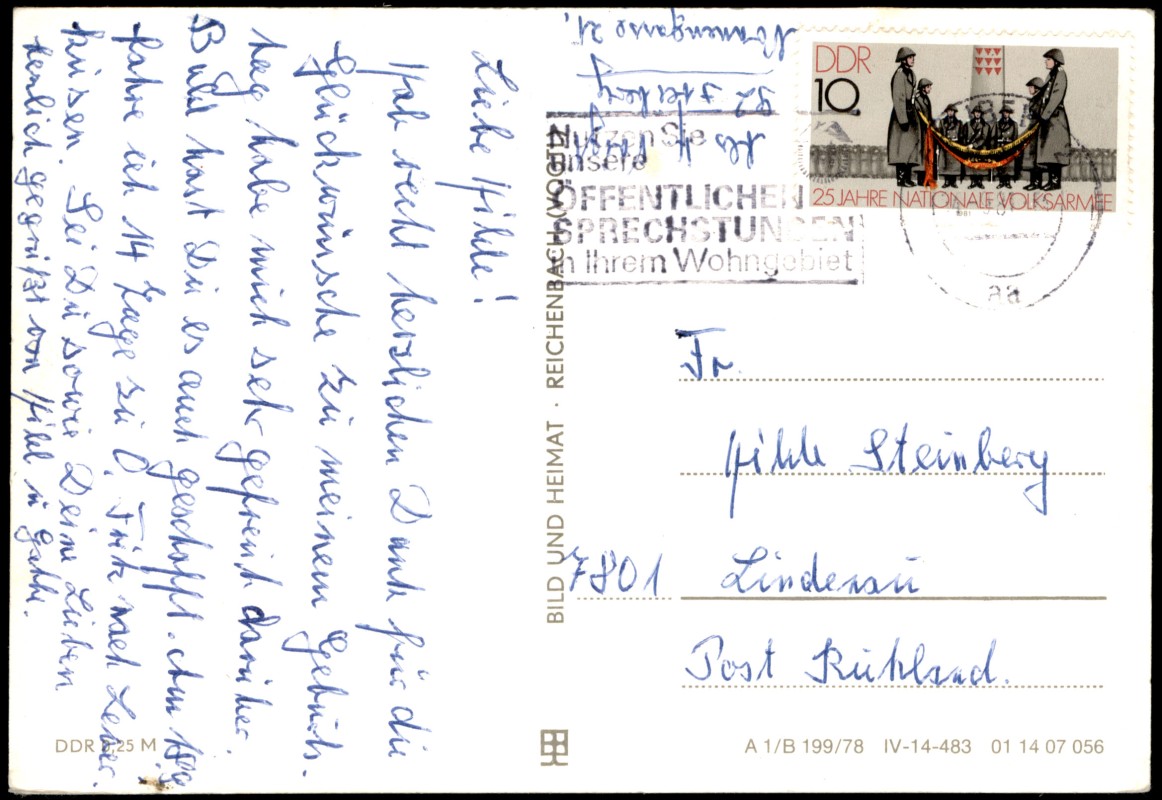 Liebe Hilde!
Hab recht herzlichen Dank für die
Glückwünsche zu meinem Geburts-
tag habe mich sehr gefreut darüber.
Bald hast Du es auch geschafft. Am
fahre ich 14 Tage zu Fritz nach
Sei Du sowie Deine Lieben
herzlich gegrüßt von

92 Freiberg
Nonnengasse 21,

DDR
10
25 JAHRE NATIONALE VOLKSARMEE

Nutzen Sie
unsere
ÖFFENTLICHEN
SPRECHSTUNDEN
in Ihrem Wohngebiet
aa

Fr.
Hilde Steinberg
7801 Lindenau
Post Ruhland.

BILD UND HEIMAT · REICHENBACH (VOGTL)
DDR 0,25 M
A 1/B 199/78 IV-14-483 01 14 07 056